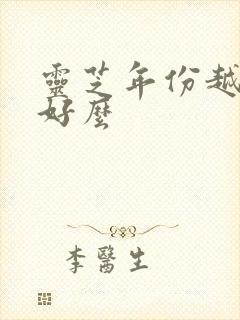 靈芝年份越
好麼
李醫生